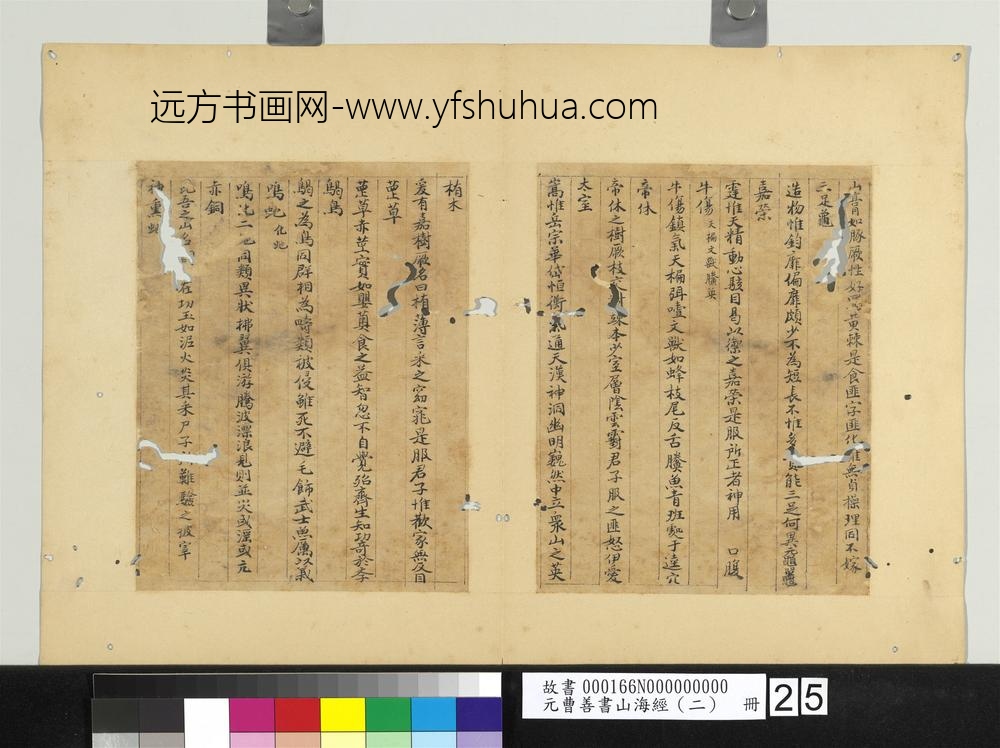 远方书画网-www.yfshuhua.com
山膏如豚厥性好罵黄棘是食匪字匪化雖無貞操理同不嫁
三足龜
造物惟鈞靡偏靡頗少不為短長不惟多賁能三足何異黿鼉
嘉榮
霆惟天精動心駭目曷以禦之嘉榮是服所正者神用 口腹
牛傷 天楄文獸騰魚
牛傷鎮氣天楄弭噎文獸如蜂枝尾反舌騰魚青班處于逵穴
帝休
帝休之樹厥枝交對 本少室層陰雲霨君子服之匪怒伊愛
太室
嵩惟岳宗華岱恒衡氣通天漢神洞幽明巍然中立衆山之英
栯木
爰有嘉樹厥名曰栯薄言采之窈窕是服君子惟歡家無反目
䔄草
䔄草赤莖實如蘡薁食之益智忽不自覺殆齊生知功奇於李
鶡鳥
鶡之為鳥同群相為疇類被侵雖死不避毛飾武士無厲以義
鳴蛇 化蛇
鳴化二蛇同類異狀拂翼俱游騰波漂浪見則並災或淫或亢
赤銅
昆吾之山名 在切玉如泥火炎其采尸子所難驗之彼宰
神 蚳
故書 000166N000000000
元曹善書山海經（二） 冊
25